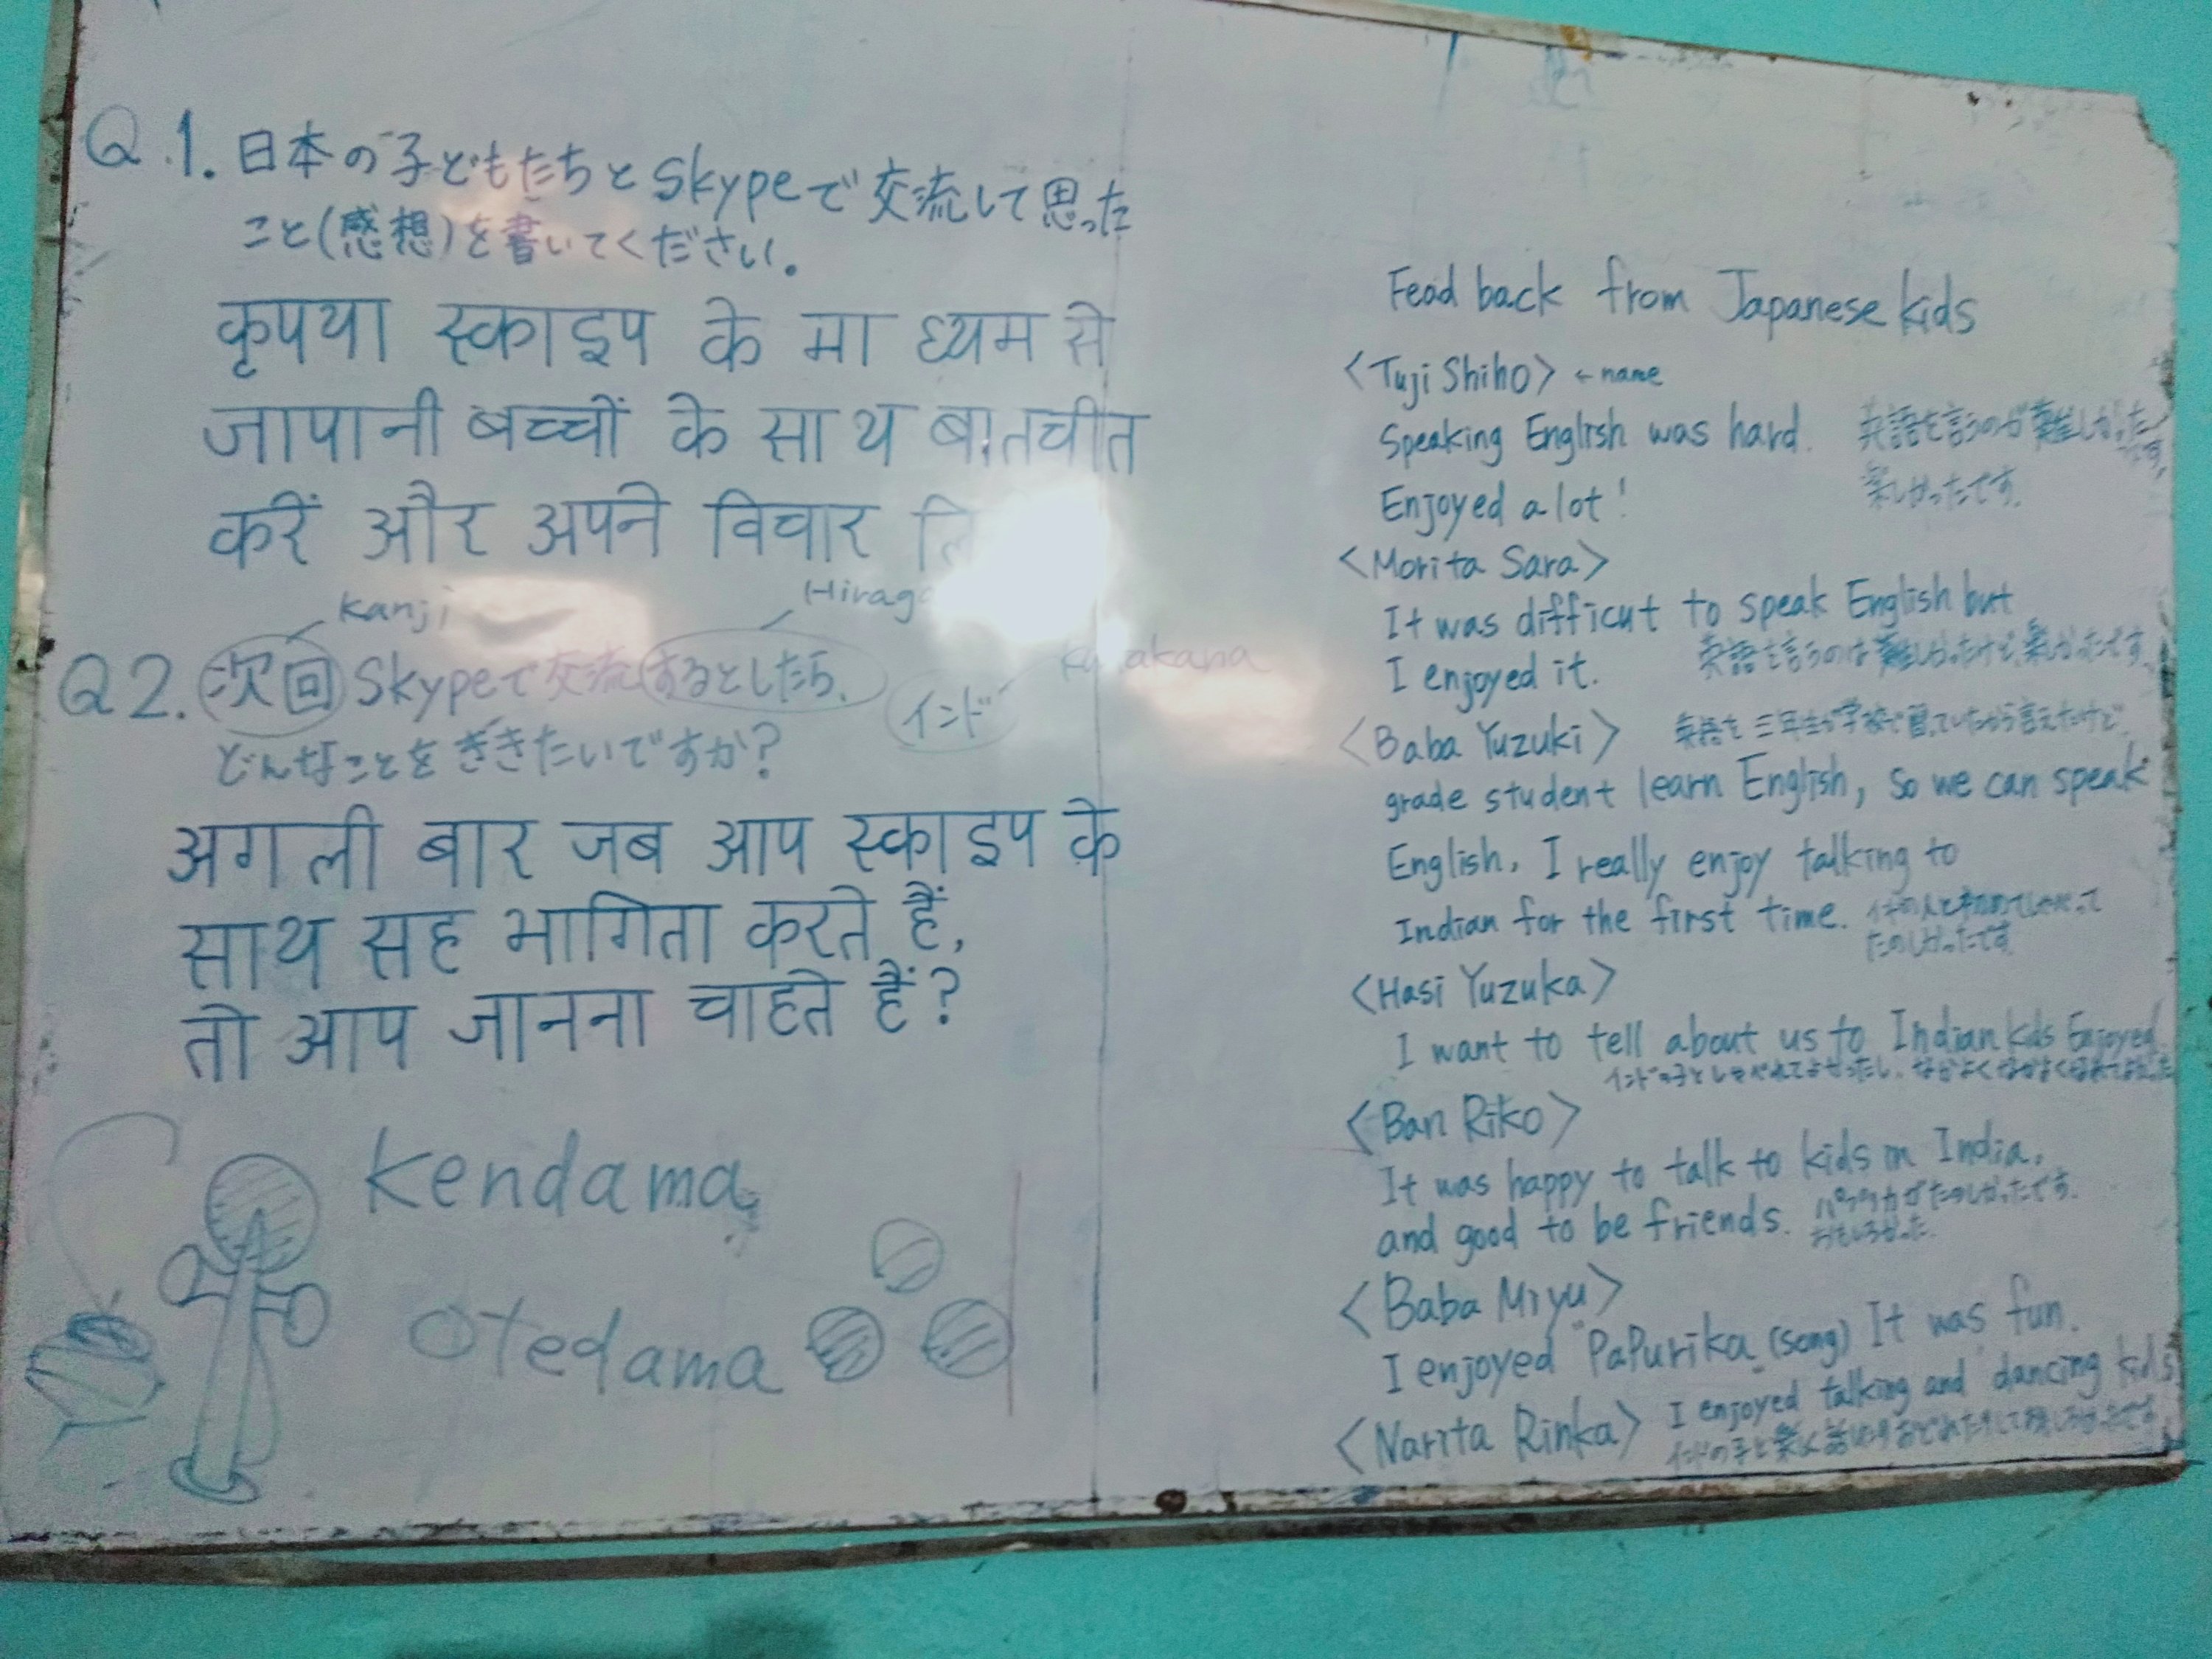 Q.1. 日本の子どもたちとSkypeで交流して思った
こと(感想)を書いてください。
कृपया स्काइप के माध्यम से
जापानी बच्चों के साथ बातचीत
करें और अपने विचार
Kanji
Q2. 次回Skypeで交流するとしたら、
インド
どんなことをききたいですか?
अगली बार जब आप स्काइप के
साथ सह भागिता करते हैं,
तो आप जानना चाहते हैं?
Kendama
otedama
Fead back from Japanese kids
<Tuji Shiho> ←name
Speaking English was hard. 英語を言うのが難しかったです。
Enjoyed a lot! 楽しかったです。
<Morita Sara>
It was difficut to speak English but
I enjoyed it. 英語を言うのは難しかったけど、楽しかったです
<Baba Yuzuki> 英語を三年生が学校で習っていたから言えたけど、
grade student learn English, so we can speak
English, I really enjoy talking to
Indian for the first time. インドの人と初めてしゃべって
たのしかったです
<Hasi Yuzuka>
I want to tell about us to Indian kids Enjoyed
<Ban Riko>
It was happy to talk to kids in India,
and good to be friends. パプリカがたのしかったです。
おもしろかった
<Baba Miyu>
I enjoyed "PaPurika (song) It was fun.
<Narita Rinka> I enjoyed talking and dancing kids